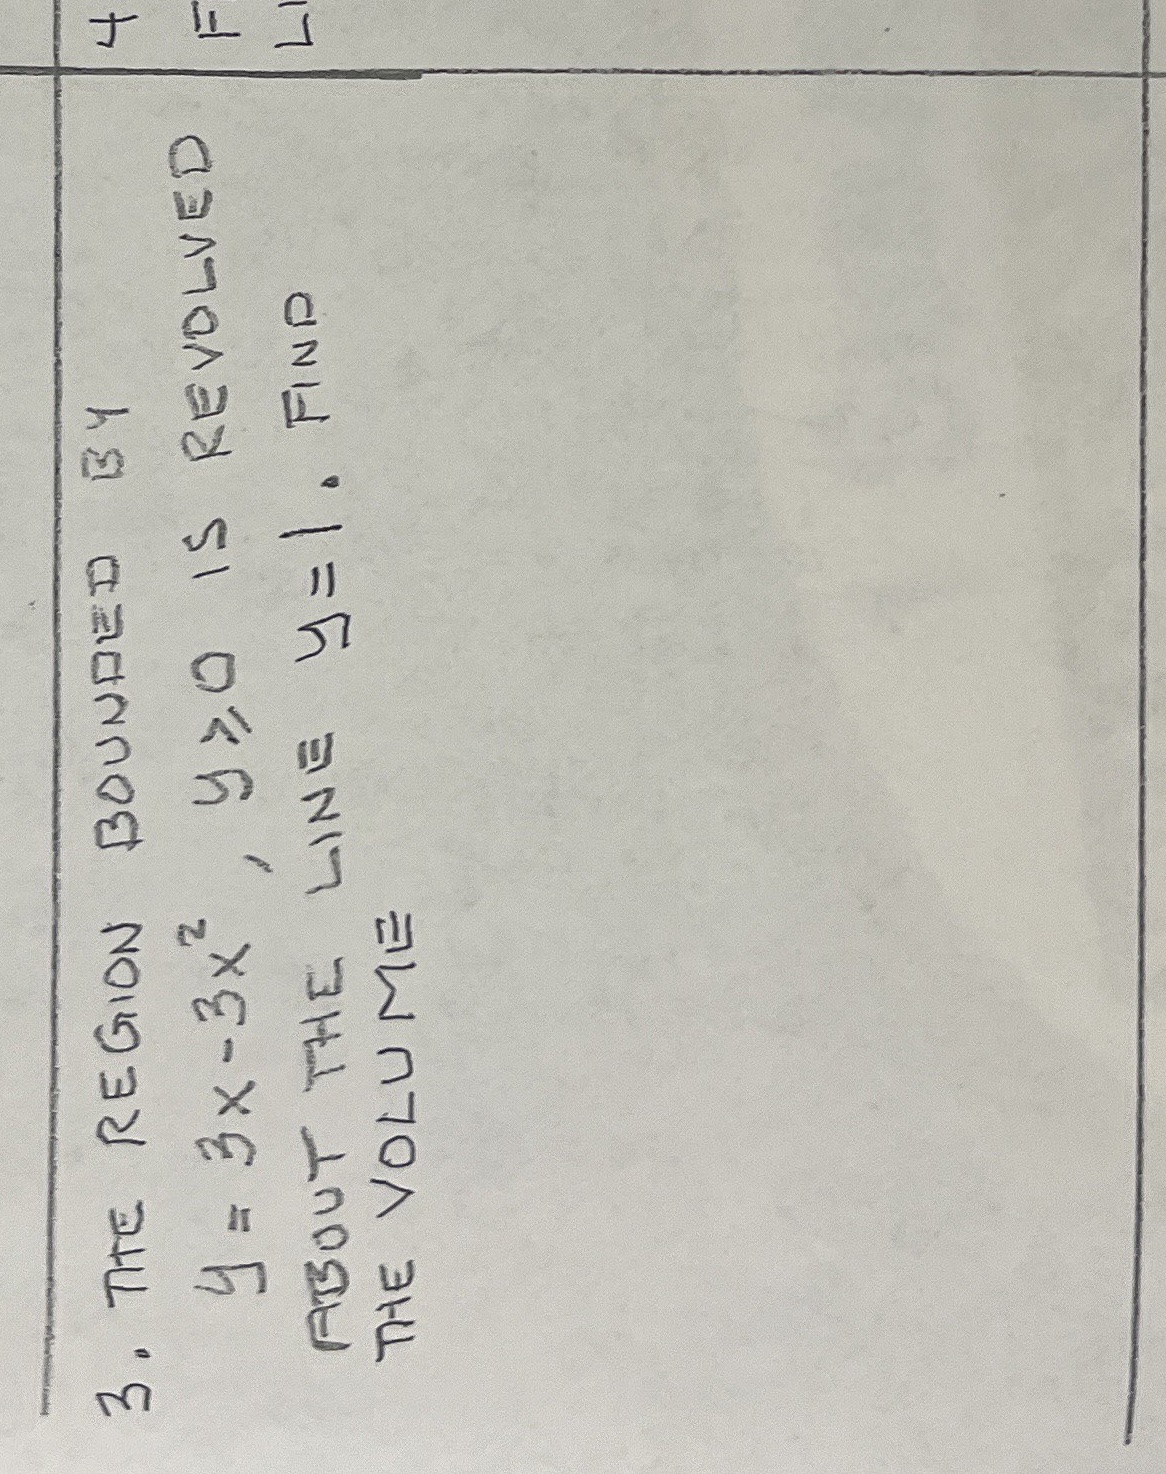 3. THE REGION BOUNDED BY
y = 3x - 3x², y ⩾ 0 IS REVOLVED
ABOUT THE LINE y = 1. FIND
THE VOLUME
4
F
LI